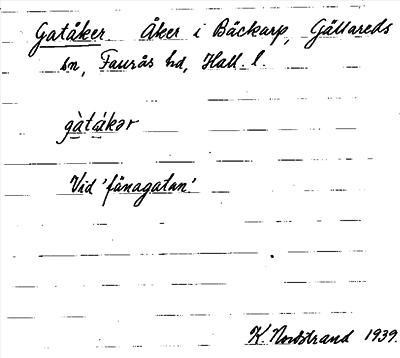 Gatåker Åker i Bäckarp, Gällareds
sn, Faurås hd, Hall. l.
gàtákər
Vid 'fänagatan'
K. Nordstrand 1939.